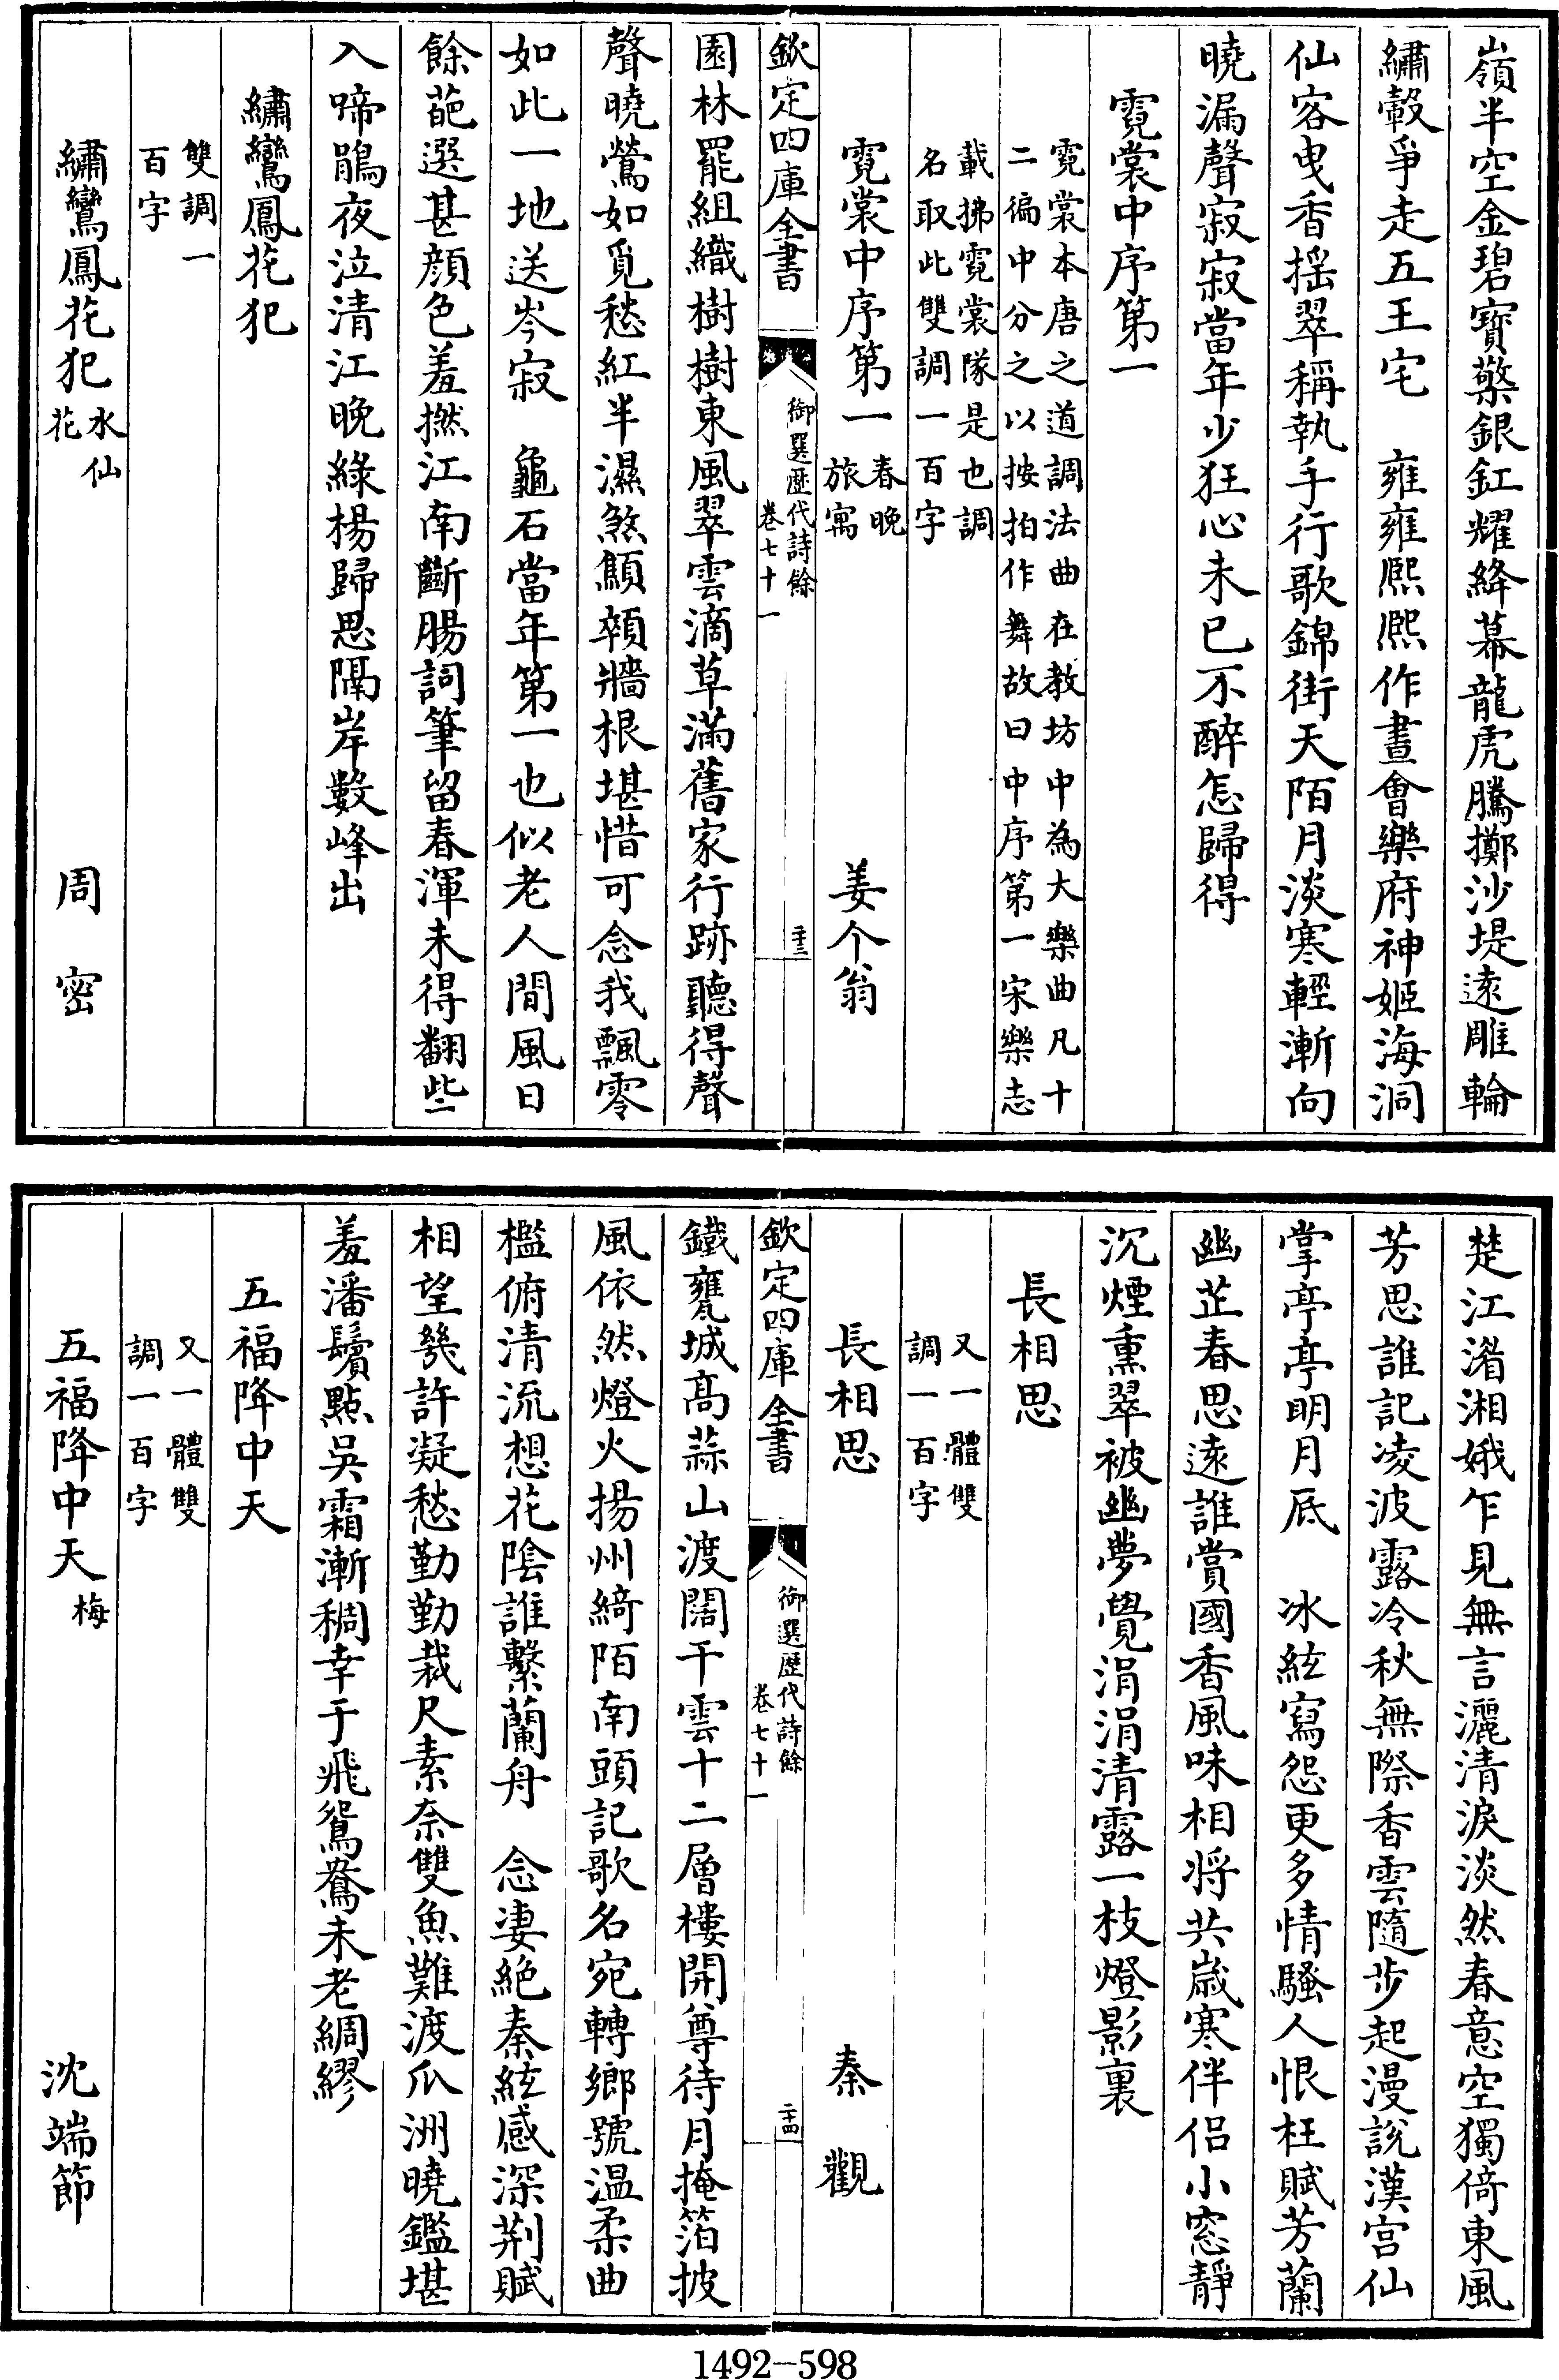 嶺半空金碧寶檠銀釭耀絳幕龍虎騰擲沙堤遠雕輪
繡轂爭走五王宅　雍雍熙熙作晝會樂府神姬海洞
仙客曳香揺翠稱執手行歌錦街天陌月淡寒輕漸向
曉漏聲寂寂當年少狂心未已不醉怎歸得
霓裳中序第一
霓裳本唐之道調法曲在教坊中為大樂曲凡十
二徧中分之以按拍作舞故曰中序第一宋樂志
載拂霓裳隊是也調
名取此雙調一百字
霓裳中序第一
春晚
旅寓
姜个翁
欽定四庫全書
御選歷代詩餘
卷七十一
二十三
園林罷組織樹樹東風翠雲滴草滿舊家行跡聽得聲
聲曉鶯如覓愁紅半濕煞顦顇牆根堪惜可念我飄零
如此一地送岑寂　龜石當年第一也似老人間風日
餘葩選甚顔色羞撚江南斷腸詞筆留春渾未得翻些
入啼鵑夜泣清江晚綠楊歸思隔岸數峰出
繡鸞鳳花犯
雙調一
百字
繡鸞鳳花犯
水仙
花
周密
楚江湄湘娥乍見無言灑清淚淡然春意空獨倚東風
芳思誰記凌波露冷秋無際香雲隨步起漫說漢宮仙
掌亭亭明月底　冰絃寫怨更多情騷人恨枉賦芳蘭
幽芷春思遠誰賞國香風味相將共歲寒伴侣小窓靜
沉煙熏翠被幽夢覺涓涓清露一枝燈影裏
長相思
又一體雙
調一百字
長相思
秦觀
欽定四庫全書
御選歷代詩餘
卷七十一
二十四
鐵甕城高蒜山渡闊干雲十二層樓開尊待月掩箔披
風依然燈火揚州綺陌南頭記歌名宛轉鄉號溫柔曲
檻俯清流想花陰誰繫蘭舟　念凄絶秦絃感深荆賦
相望幾許凝愁勤勤裁尺素奈雙魚難渡瓜洲曉鑑堪
羞潘鬢點吳霜漸稠幸于飛鴛鴦未老綢繆
五福降中天
又一體雙
調一百字
五福降中天
梅
沈端節
1492-598